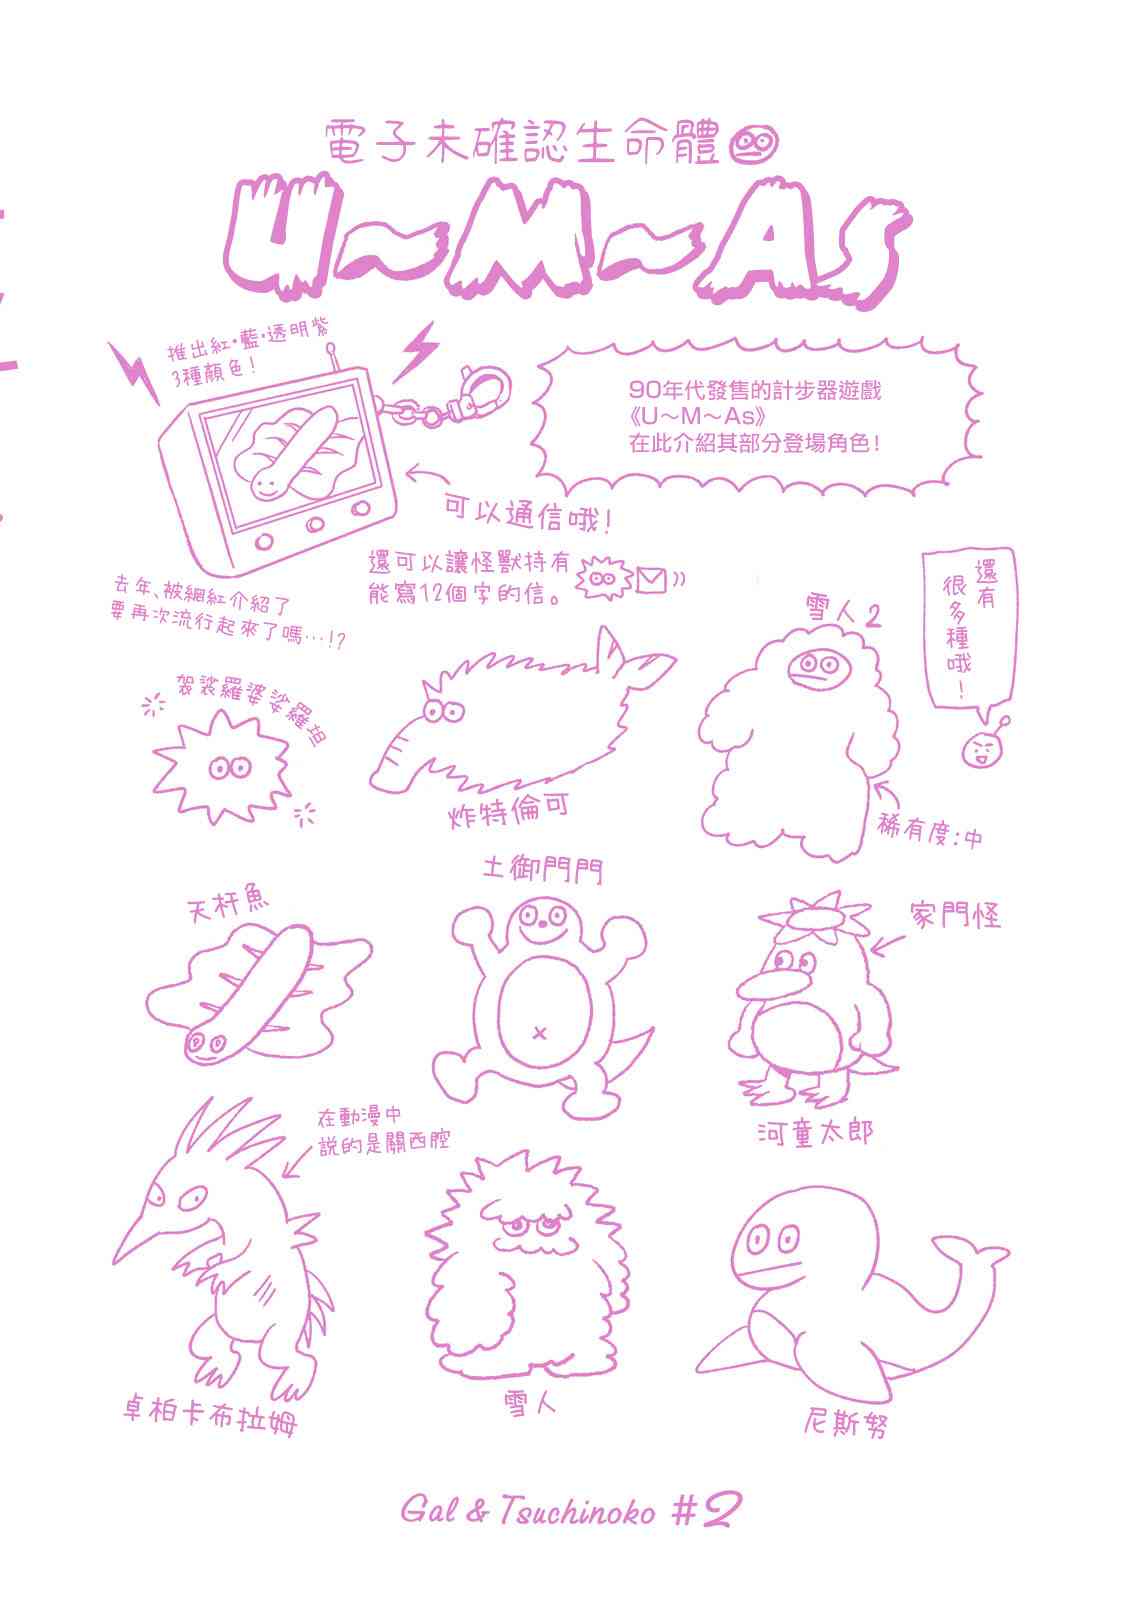 電子未確認生命體
U～M～As
推出紅・藍・透明紫
3種顏色！
90年代發售的計步器遊戲
《U～M～As》
在此介紹其部分登場角色！
可以通信哦！
還可以讓怪獸持有
能寫12個字的信。
去年、被網紅介紹了
要再次流行起來了嗎…!?
還有
很多種哦！
袈裟羅婆娑羅坦
炸特倫可
雪人2
稀有度：中
天杆魚
土御門門
家門怪
河童太郎
在動漫中
說的是關西腔
卓柏卡布拉姆
雪人
尼斯努
Gal & Tsuchinoko #2